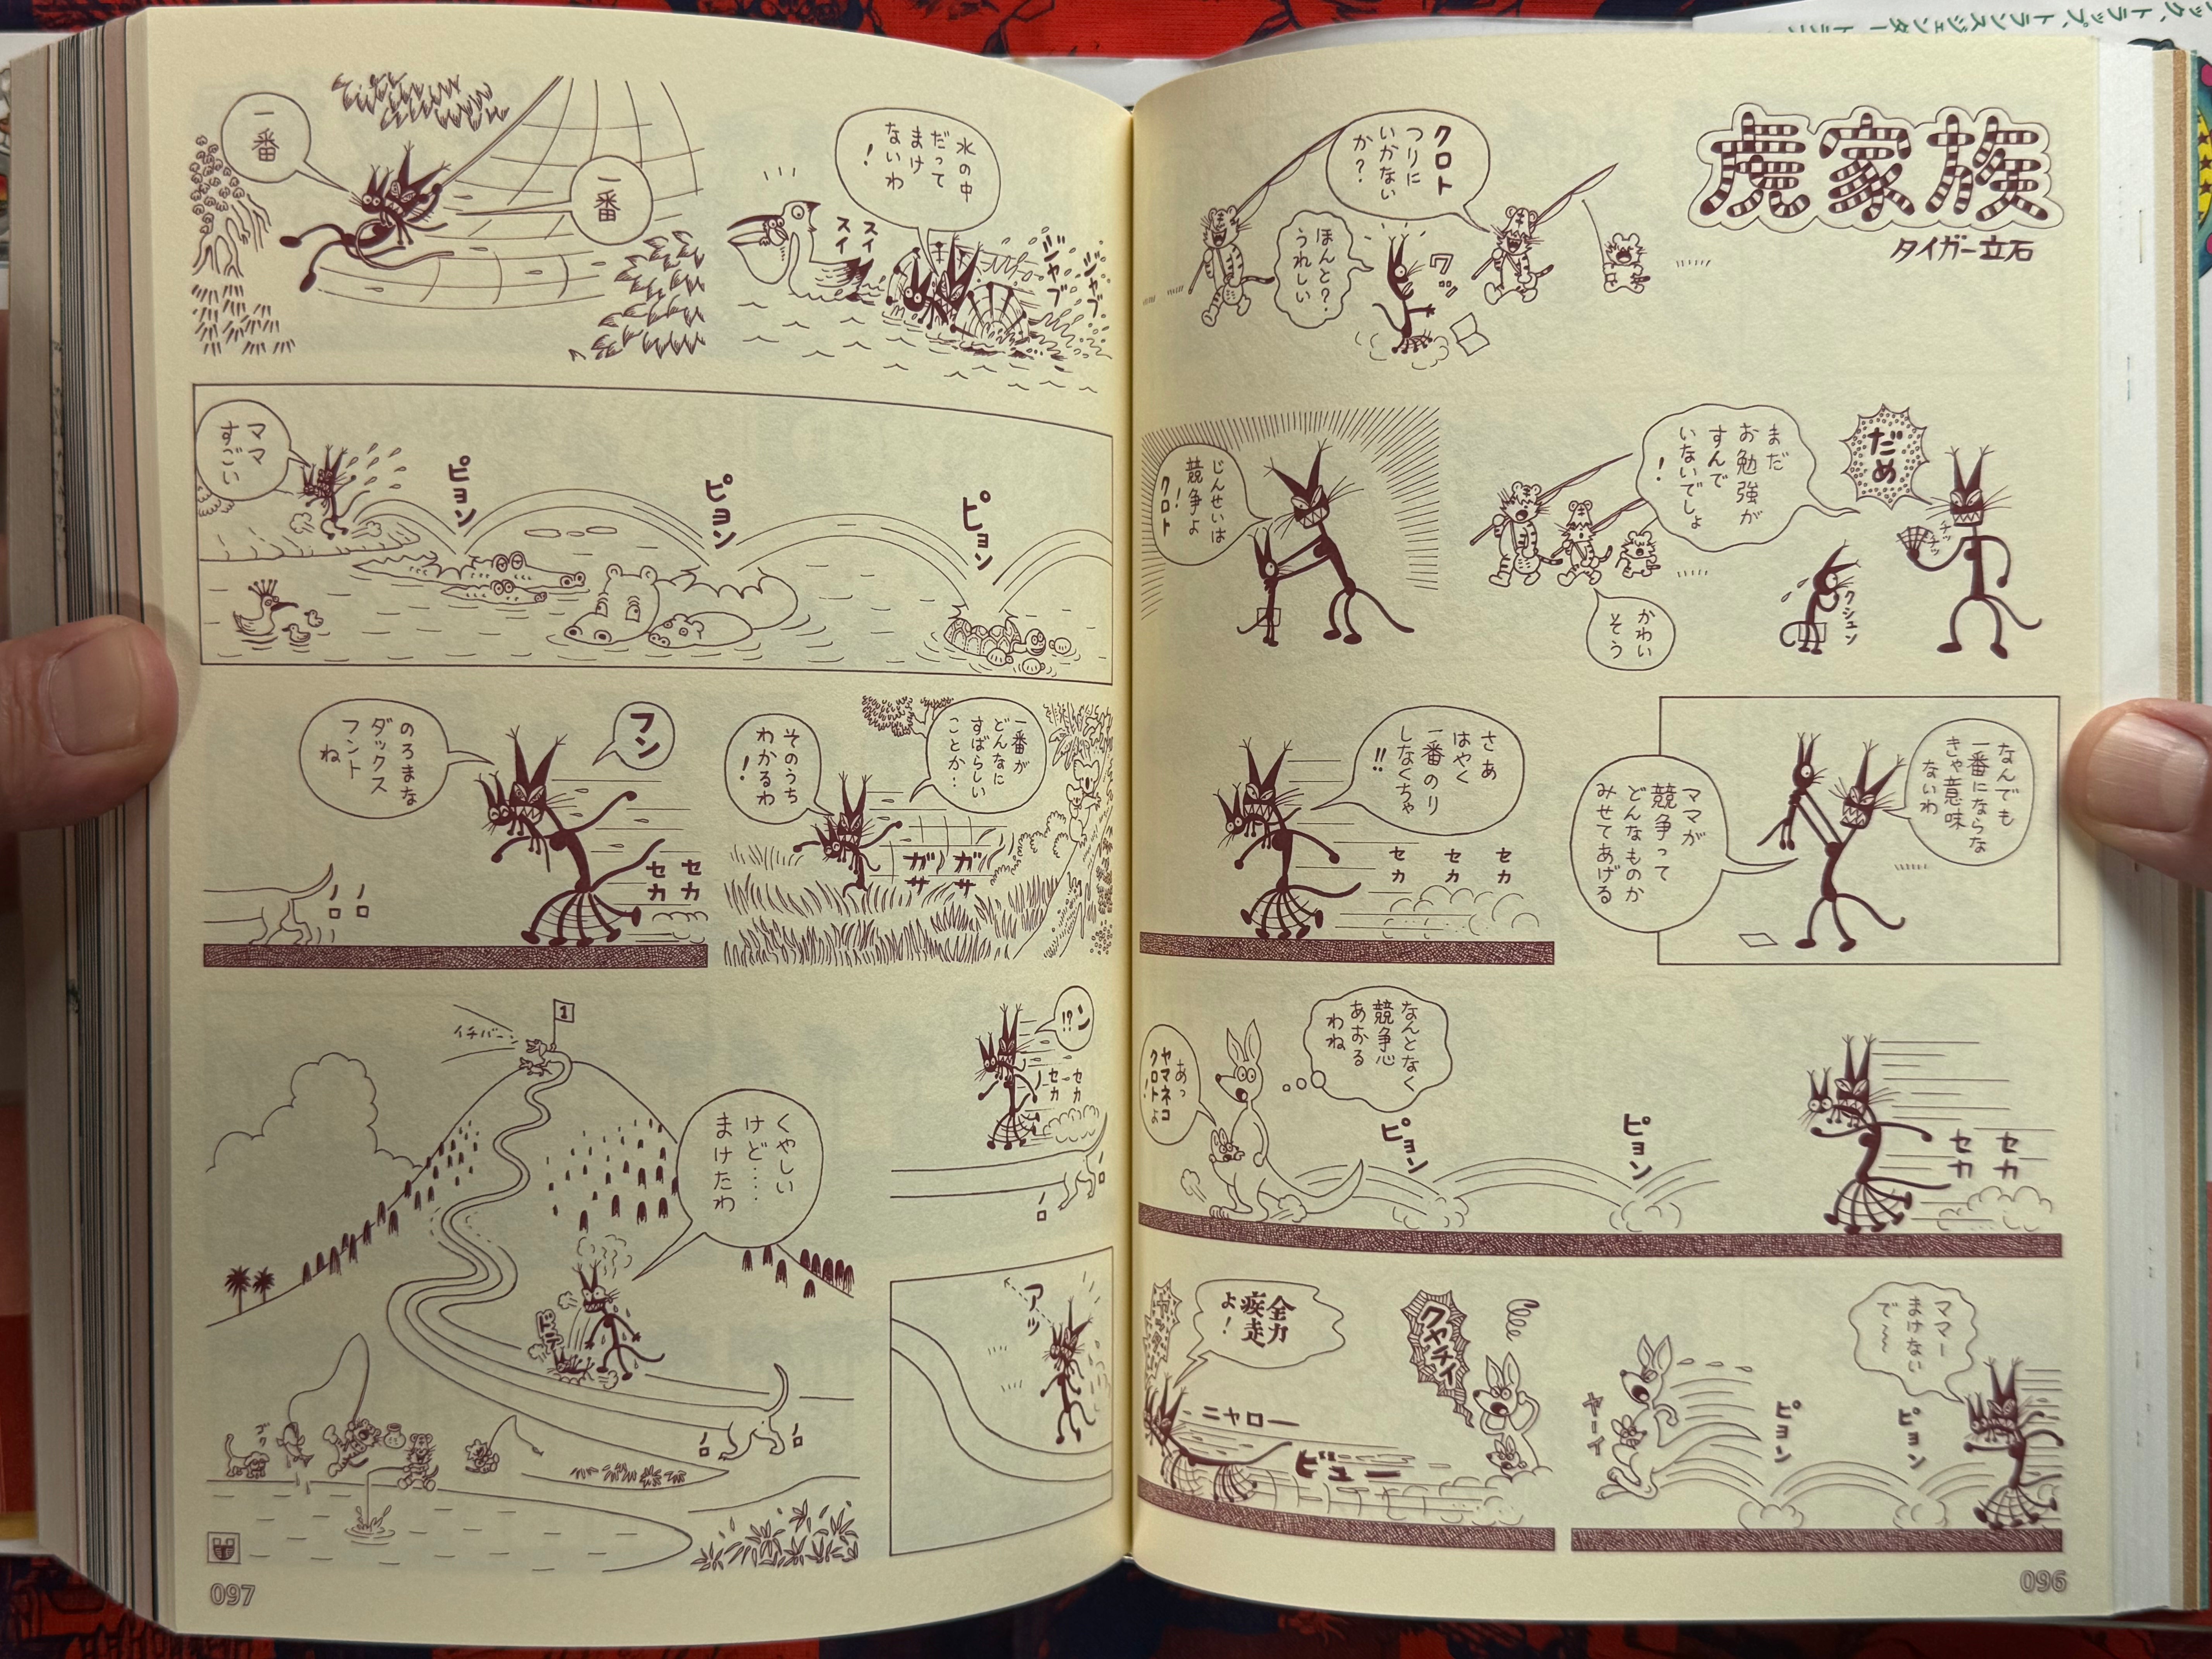 虎家族
タイガー立石
クロト
つりに
いかない
か?
ほんと?
うれしい
ワッ
だめ
まだ
お勉強が
すんで
いないでしょ
!
チッ
チッ
クシュン
かわい
そう
じんせいは
競争よ
!
クロト
なんでも
一番にならな
きゃ意味
ないわ
ママが
競争って
どんなものか
みせてあげる
さあ
はやく
一番のり
しなくちゃ
!!
セカ
セカ
セカ
セカ
セカ
ピョン
ピョン
なんとなく
競争心
あおる
わね
あっ
ヤマネコ
クロトよ
!
ママー
まけない
で~~
ピョン
ピョン
ヤーイ
クヤチイ
全力
疾走
よ!
ニャロー
ビュー
水の中
だって
まけ
ないわ
!
スイ
スイ
ジャブ
ジャブ
一番
一番
ピョン
ピョン
ピョン
ママ
すごい
一番が
どんなに
すばらしい
ことか…
そのうち
わかるわ
!
ガサ
ガサ
フン
のろまな
ダックス
フント
ね
セカ
セカ
ノロ
ノロ
ン
!?
セカ
セカ
ノロ
アッ
1
イチバーン
くやしい
けど……
まけたわ
ノロ
ノロ
097
096